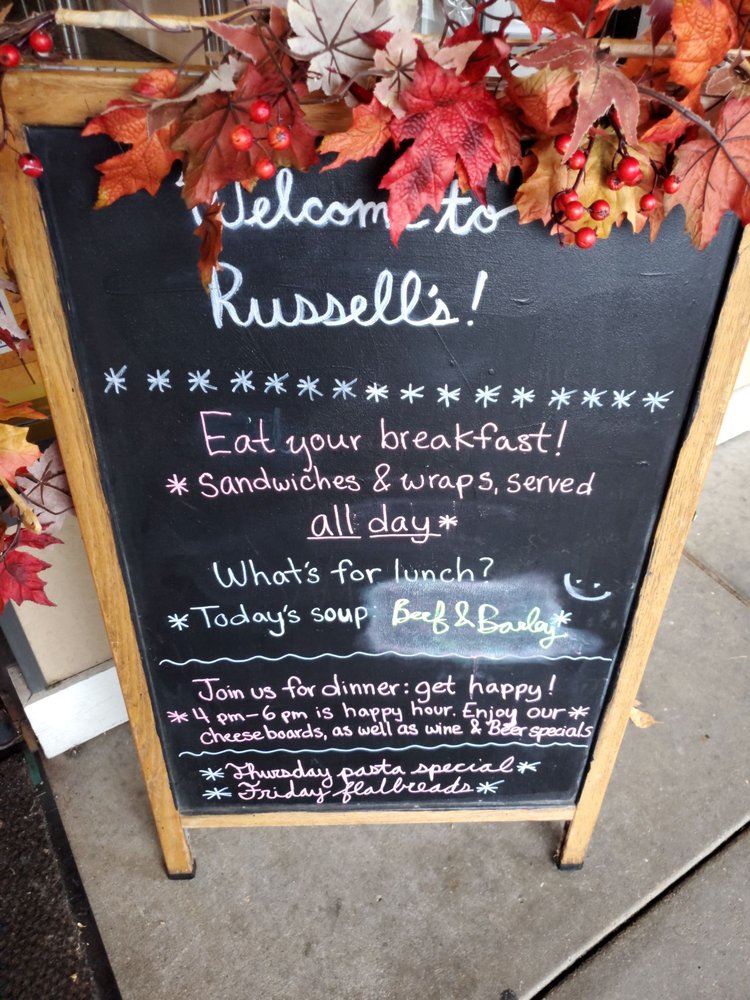 Welcome to
Russell's!
* * * * * * * * * * * * * *
Eat your breakfast!
* Sandwiches & wraps, served
all day *
What's for lunch?
* Today's soup: Beef & Barley *
Join us for dinner: get happy!
* 4 pm - 6 pm is happy hour. Enjoy our *
cheese boards, as well as wine & Beer specials
* Thursday pasta special *
* Friday flatbreads *